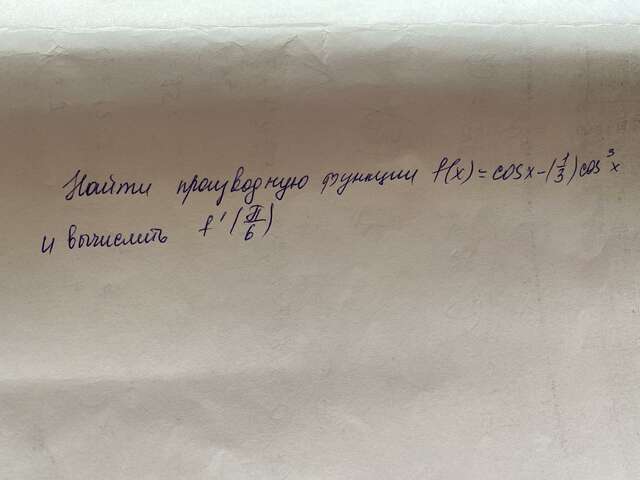 Найти производную функции f(x)=cosx-(1/3)cos³x
и вычислить f'(π/6)